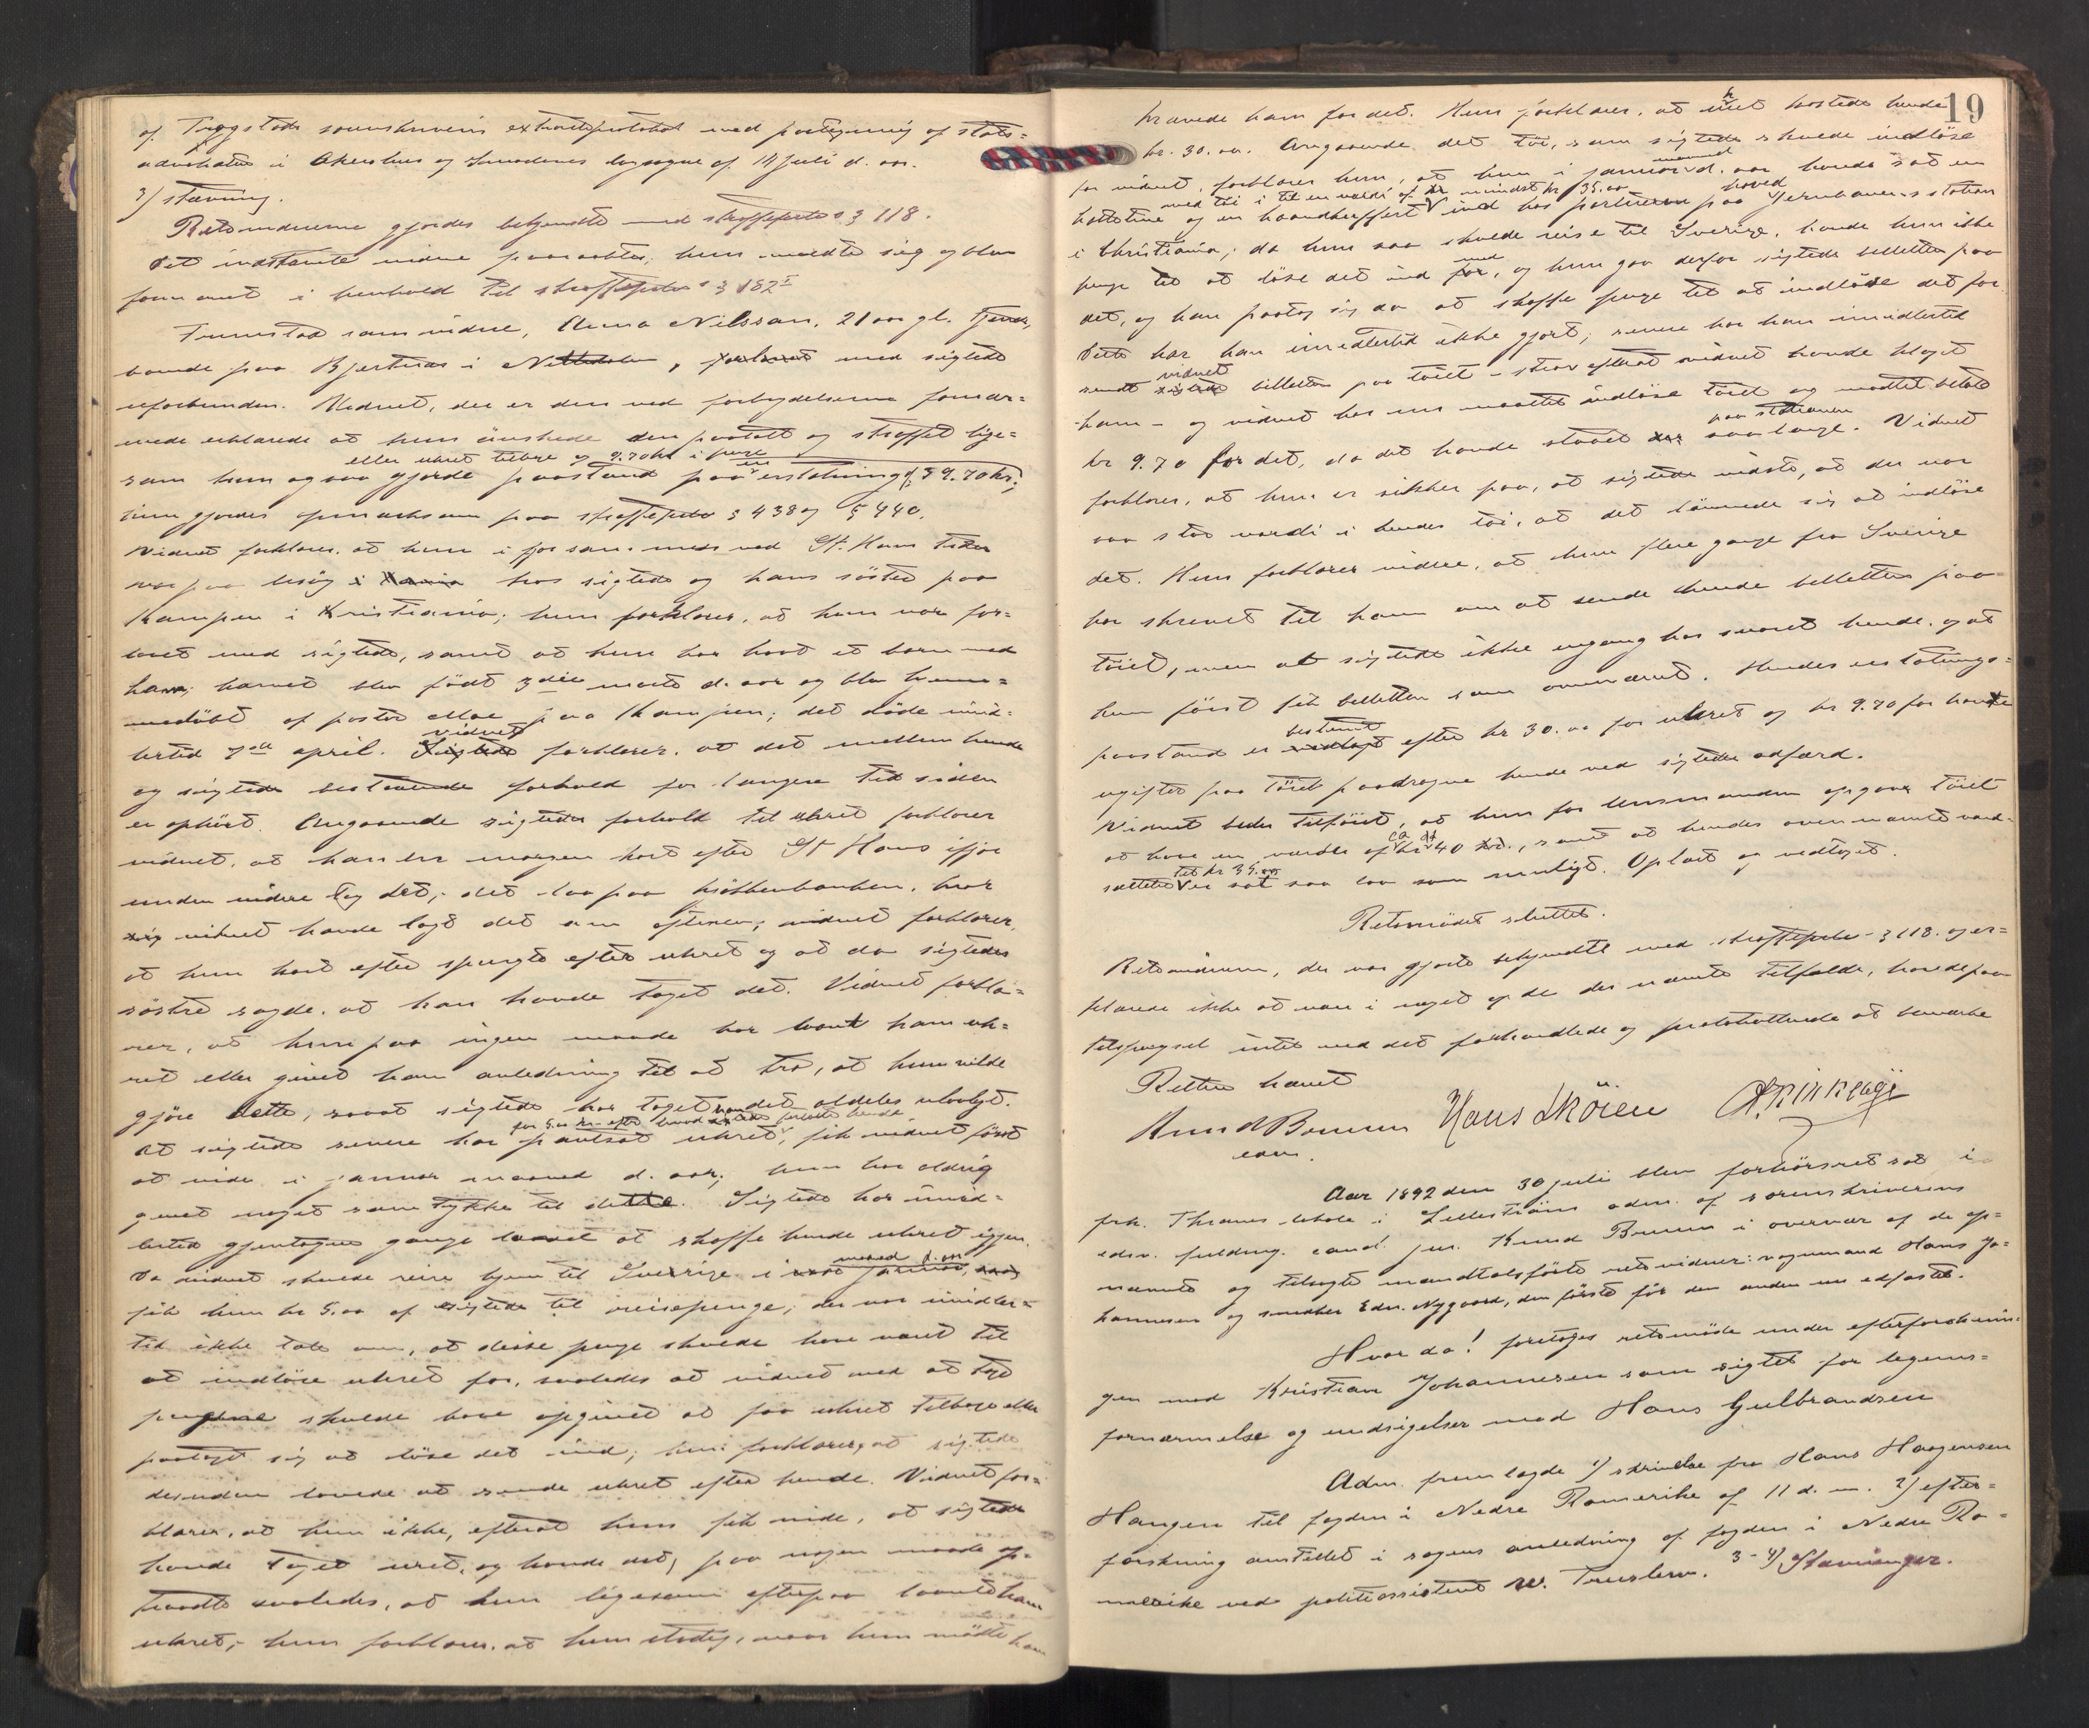 af Trygstads sorenskriveris extraretsprotokol med paategning af stats=
advokaten i Akershus og Smaalenenes lagsogne af 14 juli d. aar.
3/ stævning.
Retsvidnerne gjordes bekjendte med straffeprlov § 118.
Det indstævnte vidne paaraabtes; hun meldte sig og blev
formanet i henhold til straffeprlov § 182
Fremstod som vidne, Elena Nilssan, 21 aar gl. tjen
ende paa Bjertnæs i Nittedalen, forlovet med sigtede
uforbunden. Vidnet, der er den ved forbrydelserne fornær=
mede erklærede at hun ønskede den paatalt og straffet lige=
eller uhret tilbage og 9.70 kr i penge
som hun ogsaa gjorde paastand paa en erstatning af 39.70 kr.;
hun gjordes opmærksom paa straffeprlov § 438 og § 440.
Vidnet forklarer, at hun i fjor sommer ved St. Hans tider
var paa besøg i hos sigtede og hans søster paa
Kampen i Kristiania; hun forklarer, at hun var for=
lovet med sigtede, samt at hun har havt et barn med
ham; barnet blev født 3die marts d. aar og blev hjemme=
døbt af pastor Moe paa Kampen; det døde imid=
vidnet
lertid 7de april. Sigtede forklarer, at det mellem hende
og sigtede bestaaende forhold for længere tid siden
er ophørt. Angaaende sigtedes forhold til uhret forklarer
vidnet, at han en morgen kort efter St Hans ifjor
uden videre tog det; det laa paa kjøkkenbænken, hvor
vidnet havde lagt det om aftenen; vidnet forklarer,
at hun kort efter spurgte efter uhret og at da sigtedes
søster sagde, at han havde taget det. Vidnet forkla=
rer, at hun paa ingen maade har laant ham uh=
ret eller givet ham anledning til at tro, at hun vilde
gjøre dette, saaat sigtede har taget det aldeles ulovligt.
for 5.00 kr efter hvad sigtede fortalte hende
At sigtede senere har pantsat uhret, fik vidnet først
at vide i januar maaned d. aar; hun har aldrig
givet noget samtykke til dette. Sigtede har imid=
lertid gjentagne gange lovet at skaffe hende uhret igjen.
maaned d. aar
Da vidnet skulde reise hjem til Sverige i januar,
fik hun kr 5.00 af sigtede til reisepenge; der var imidler=
tid ikke tale om, at disse penge skulde have været til
at indløse uhret for, saaledes at vidnet ved at tage
pengene skulde have opgivet at faa uhret tilbage eller
paataget sig at løse det ind; hun forklarer, at sigtede
desuden lovede at sende uhret efter hende. Vidnet for=
klarer, at hun ikke, efterat hun fik vide, at sigtede
havde taget uret, og havde det, paa nogen maade op=
traadte saaledes, at hun ligesom efterpaa laante ham
uhret; hun forklarer, at hun stadig, naar hun mødte ham
19
krævede ham for det. Hun forklarer, at uhret kostede hende
kr. 30.00. Angaaende det tøi, som sigtede skulde indløse
maaned
for vidnet, forklarer hun, at hun i januar d. aar havde sat en
med tøi i til en værdi af mindst kr 35.00 hoved
kuffert og en haandkuffert ind hos portieren paa Jernbanens station
i Christiania; da hun saa skulde reise til Sverige, havde hun ikke
med
penge til at løse det ind for, og hun gav derfor sigtede billetten paa
det, og han paatog sig da at skaffe penge til at indløse det for.
Dette har han imidlertid ikke gjort; senere har han imidlertid
vidnet
sendt sigtede billetten paa tøiet – strax efterat vidnet havde klaget
ham – og vidnet har nu maattet indløse tøiet og maattet betale
paa stationen
kr 9.70 for det, da det havde staaet der saa længe. Vidnet
forklarer, at hun er sikker paa, at sigtede vidste, at der var
saa stor værdi i hendes tøi, at det lønnede sig at indløse
det. Hun forklarer videre, at hun flere gange fra Sverige
har skrevet til ham om at sende hende billetten paa
tøiet, men at sigtede ikke engang har svaret hende, og at
hun først fik billetten som ovennævnt. Hendes erstatnings=
bestemt
paastand er efter kr 30.00 for uhret og kr 9.70 for havte
ugifter paa tøiet paadragne hende ved sigtedes adfærd.
Vidnet beder tilføiet, at hun for lensmanden opgav tøiet
at have en værdi af ca kr 40, samt at hendes ovennævnte værd=
til kr 35.00
sættelse er sat saa lav som muligt. Oplæst og vedtaget.
Retsmødet sluttet.
Retsvidnerne, der var gjorte bekjendte med straffeprlov § 118. og er=
klærede ikke at være i noget af de der nævnte tilfælde, havde paa
tilspørgsel intet ved det forhandlede og protokollerede at bemærke
Retten hævet
Knud Bommen Hans Skøien
edsv.
Aar 1892 den 30 juli blev forhørsret sat i
frk. Thranes lokale i Lillestrøm adm. af sorenskriverens
edsv. fuldmg. cand. jur. Knud Bommen i overvær af de op=
nævnte og tilsagte mandtalsførte retsvidner: vognmand Hans Jo=
hannesen og snedker Edv. Nygaard, den første før den anden nu edfæstet.
Hvor da! foretoges retsmøde under efterforsknin=
gen mod Kristian Johannesen som sigtet for legems=
fornærmelse og undsigelser mod Hans Gulbrandsen
Adm. fremlagde 1/ skrivelse fra Hans Haagensen
Haugen til fogden i Nedre Romerike af 11 d. m. 2/ efter=
forskning anstillet i sagens anledning af fogden i Nedre Ro=
merike ved politiassistent W. Truslew. 3-4/ Stævninger.